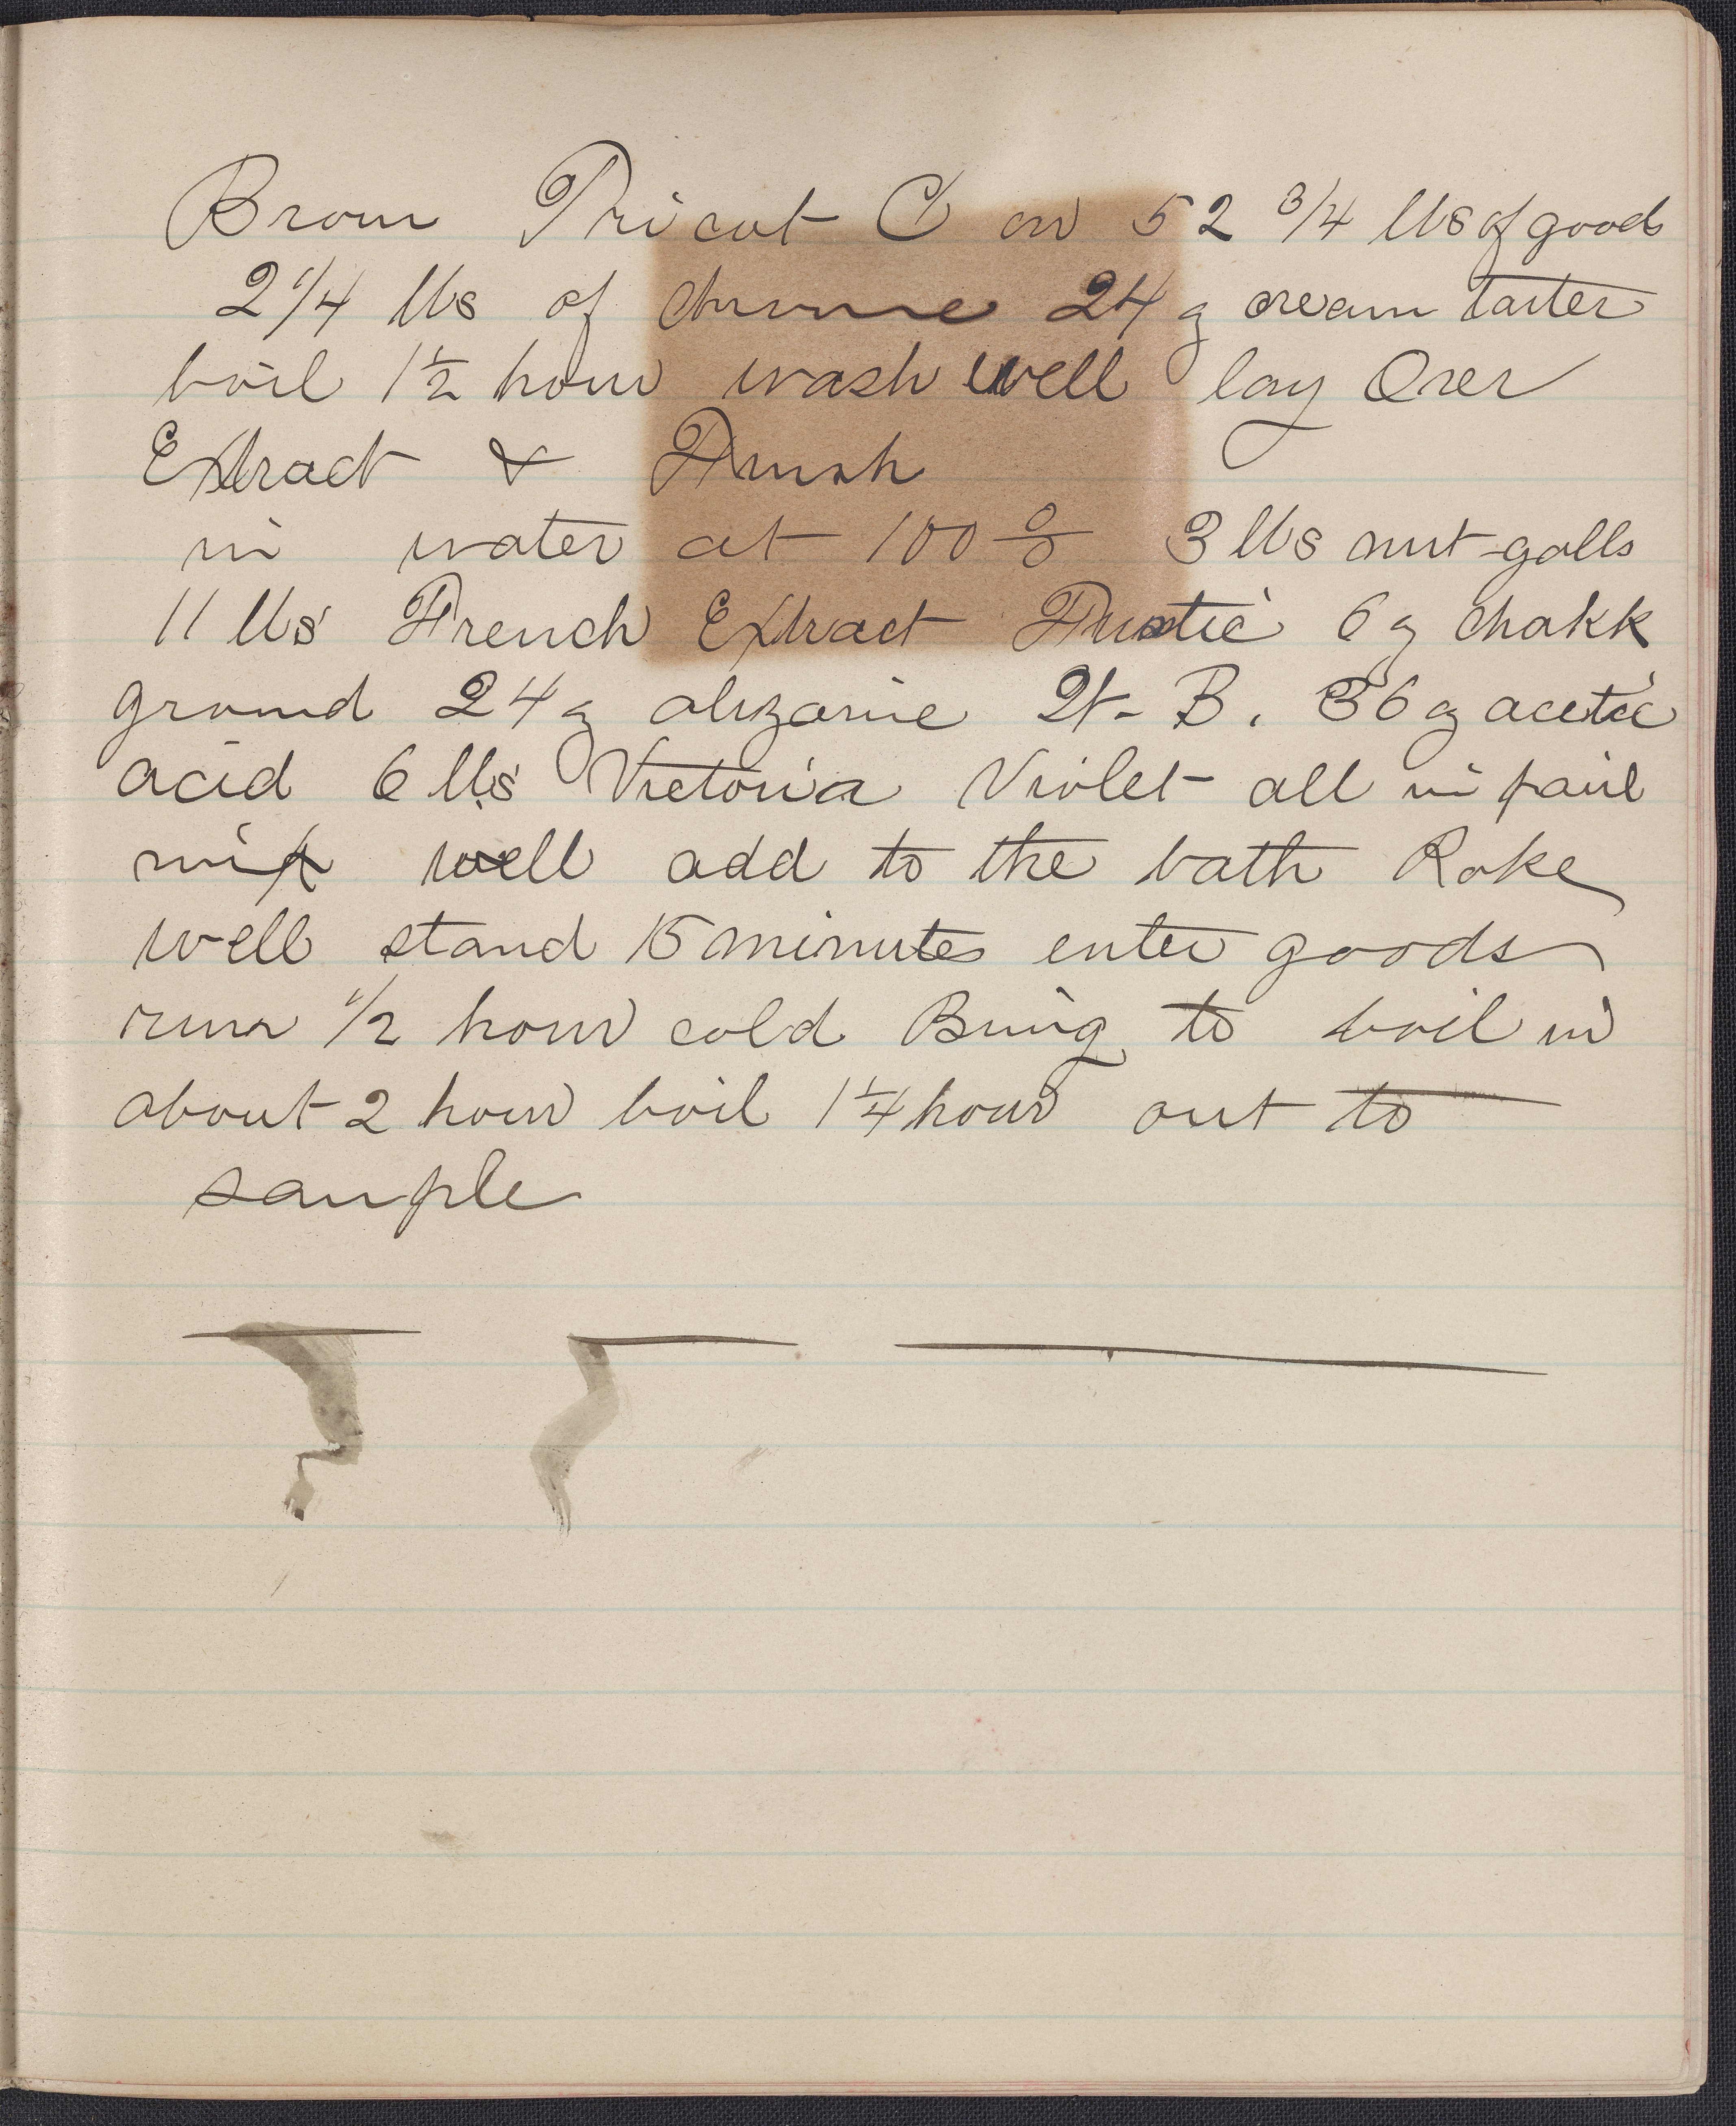 Brown Tricot C on 52 3/4 lbs of good
2 1/4 lbs of chrome 24 g cream tarter
boil 1 1/2 hour wash well lay Over
Extract & Finish
in water at 100 % 3 lbs nut-galls
11 lbs French Extract Fustic 6 g chakk
ground 24 g alizarine B. 36 g acetic
acid 6 lbs Victoria Violet all in pail
mix well add to the bath Rake
well stand 15 minutes enter goods
run 1/2 hour cold Bring to boil in
about 2 hour boil 1 1/4 hour out to
sample